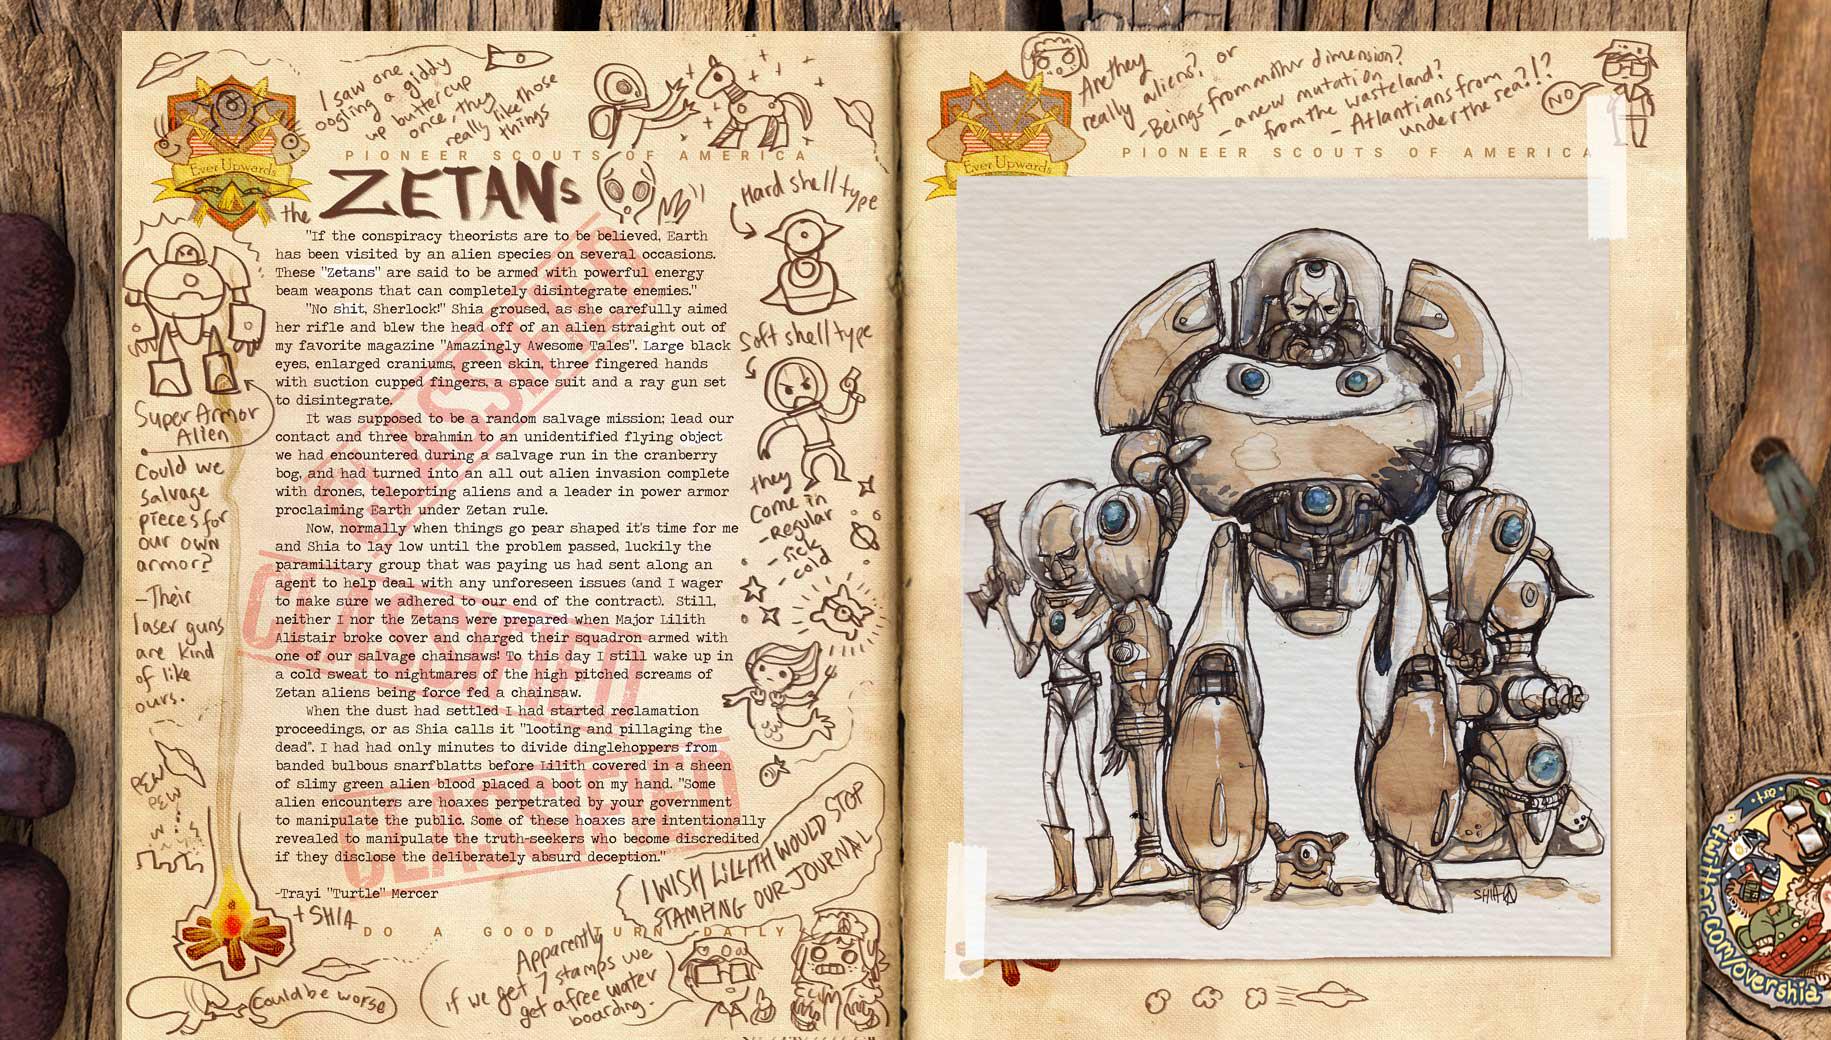 I saw one
oogling a giddy
up buttercup
once, they
really like those
things
Ever Upwards
PIONEER SCOUTS OF AMERICA
the ZETANs
"If the conspiracy theorists are to be believed, Earth
has been visited by an alien species on several occasions.
These "Zetans" are said to be armed with powerful energy
beam weapons that can completely disintegrate enemies."
"No shit, Sherlock!" Shia groused, as she carefully aimed
her rifle and blew the head off of an alien straight out of
my favorite magazine "Amazingly Awesome Tales". Large black
eyes, enlarged craniums, green skin, three fingered hands
with suction cupped fingers, a space suit and a ray gun set
to disintegrate.
It was supposed to be a random salvage mission; lead our
contact and three brahmin to an unidentified flying object
we had encountered during a salvage run in the cranberry
bog, and had turned into an all out alien invasion complete
with drones, teleporting aliens and a leader in power armor
proclaiming Earth under Zetan rule.
Now, normally when things go pear shaped it's time for me
and Shia to lay low until the problem passed, luckily the
paramilitary group that was paying us had sent along an
agent to help deal with any unforeseen issues (and I wager
to make sure we adhered to our end of the contract). Still,
neither I nor the Zetans were prepared when Major Lilith
Alistair broke cover and charged their squadron armed with
one of our salvage chainsaws! To this day I still wake up in
a cold sweat to nightmares of the high pitched screams of
Zetan aliens being force fed a chainsaw.
When the dust had settled I had started reclamation
proceedings, or as Shia calls it "looting and pillaging the
dead". I had had only minutes to divide dinglehoppers from
banded bulbous snarfblatts before Lilith covered in a sheen
of slimy green alien blood placed a boot on my hand. "Some
alien encounters are hoaxes perpetrated by your government
to manipulate the public. Some of these hoaxes are intentionally
revealed to manipulate the truth-seekers who become discredited
if they disclose the deliberately absurd deception."
-Trayi "Turtle" Mercer
+ SHIA
CLASSIFIED
CLASSIFIED
CLASSIFIED
Super Armor
Alien
Could we
salvage
pieces for
our own
armor?
-Their
laser guns
are kind
of like
ours.
PEW
PEW
Hard shell type
Soft shell type
they
come in
-regular
-sick
-cold
I WISH LILLITH WOULD STOP
STAMPING OUR JOURNAL
DO A GOOD TURN DAILY
Could be worse
Apparently
if we get 7 stamps we
get a free water
boarding.
Are they
really aliens?, or
-Beings from another dimension?
-a new mutation
from the wasteland?
-Atlantians from
under the sea?!?
NO
Ever Upwards
PIONEER SCOUTS OF AMERICA
SHIA
twitter.com/overshia